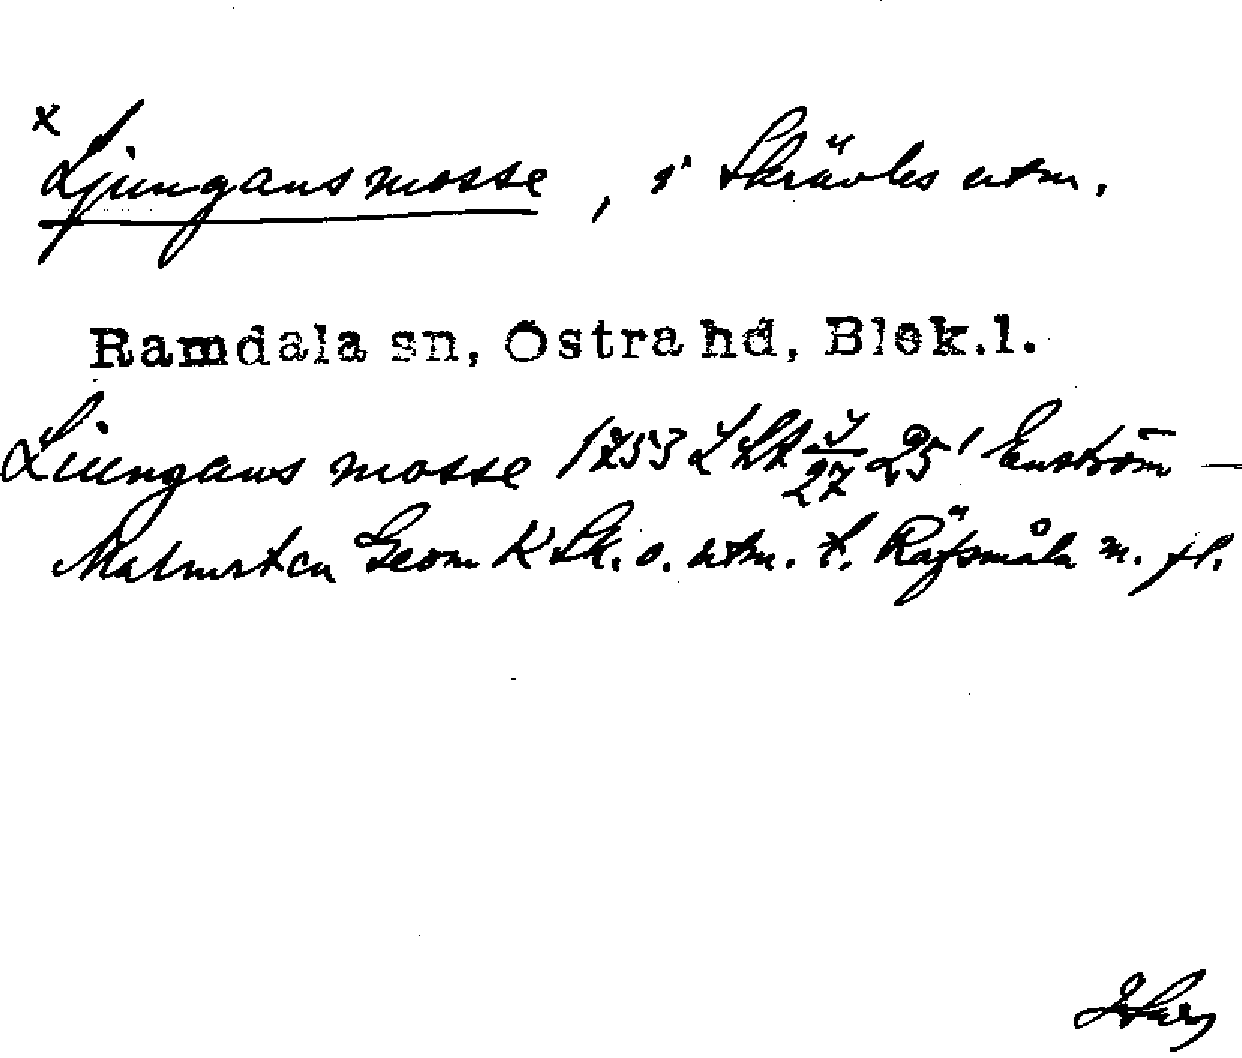 x
Ljungans mosse, i Skrävles utm.
Ramdala sn, Östra hd, Blek.l.
Liungans mosse 1753 LSt J/27 25¹ Enström –
Malmsten Geom K Sk. o. utm. t. Räfsmåla m. fl.